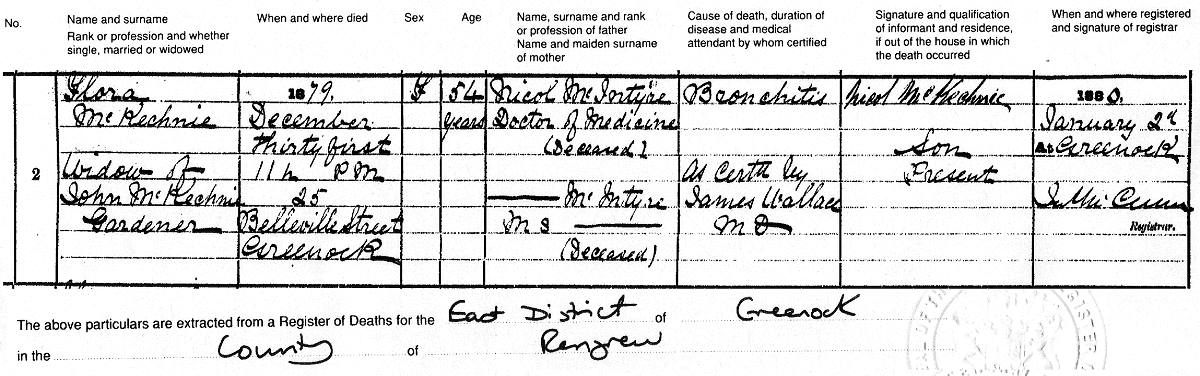 No.
Name and surname
Rank or profession and whether
single, married or widowed
When and where died
Sex
Age
Name, surname and rank
or profession of father
Name and maiden surname
of mother
Cause of death, duration of
disease and medical
attendant by whom certified
Signature and qualification
of informant and residence,
if out of the house in which
the death occurred
When and where registered
and signature of registrar
2
Flora
McKechnie
Widow of
John McKechnie
Gardener
1879.
December
Thirty first
11 h PM
25
Belleville Street
Greenock
F
54
years
Nicol McIntyre
Doctor of Medicine
(Deceased)
McIntyre
M S
(Deceased)
Bronchitis
As Certd by
James Wallace
M D
Nicol McKechnie
Son
Present
1880.
January 2d
At Greenock
Registrar.
The above particulars are extracted from a Register of Deaths for the East District of Greenock
in the County of Renfrew